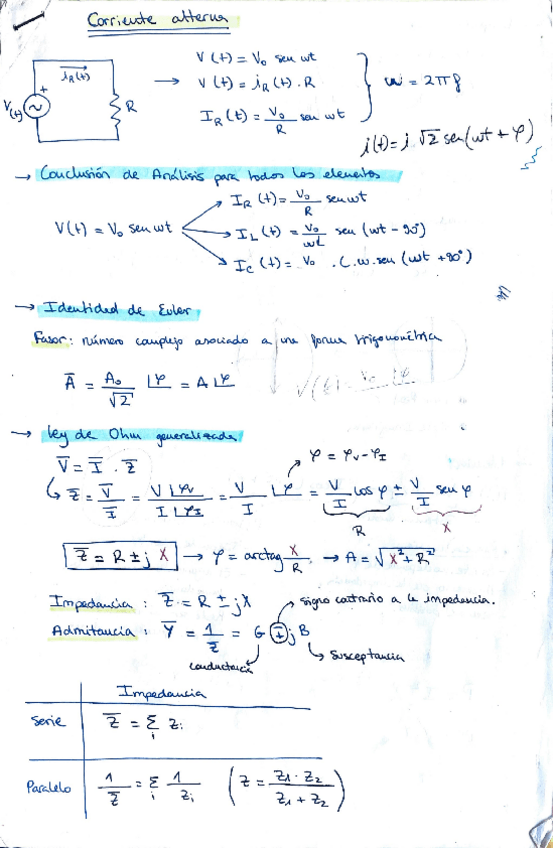 Corriente alterna
i_R(t)
V(t)
+
R
→ V(t) = V₀ sen wt
V(t) = i_R(t) · R
I_R(t) = V₀/R sen wt
w = 2πf
i(t) = i √2 sen(wt + φ)
→ Conclusión de Análisis para todos los elementos
V(t) = V₀ sen wt
I_R(t) = V₀/R sen wt
I_L(t) = V₀/wL sen (wt - 90°)
I_C(t) = V₀ · C.w.sen (wt + 90°)
→ Identidad de Euler
Fasor: número complejo asociado a una forma trigonométrica
Ā = A₀/√2 ∠φ = A∠φ
→ Ley de Ohm generalizada
V̄ = Ī · Z̄
φ = φ_V - φ_I
Z̄ = V̄/Ī = V∠φ_V / I∠φ_I = V/I ∠φ = V/I cos φ ± V/I sen φ
R
X
Z̄ = R ± j X → φ = arctag X/R → A = √(X² + R²)
Impedancia : Z̄ = R ± jX
signo contrario a la impedancia.
Admitancia : Ȳ = 1/Z̄ = G ∓ j B
conductancia
susceptancia
Impedancia
Serie Z̄ = Σᵢ Zᵢ
Paralelo 1/Z̄ = Σᵢ 1/Zᵢ (Z = Z₁ · Z₂ / Z₁ + Z₂)